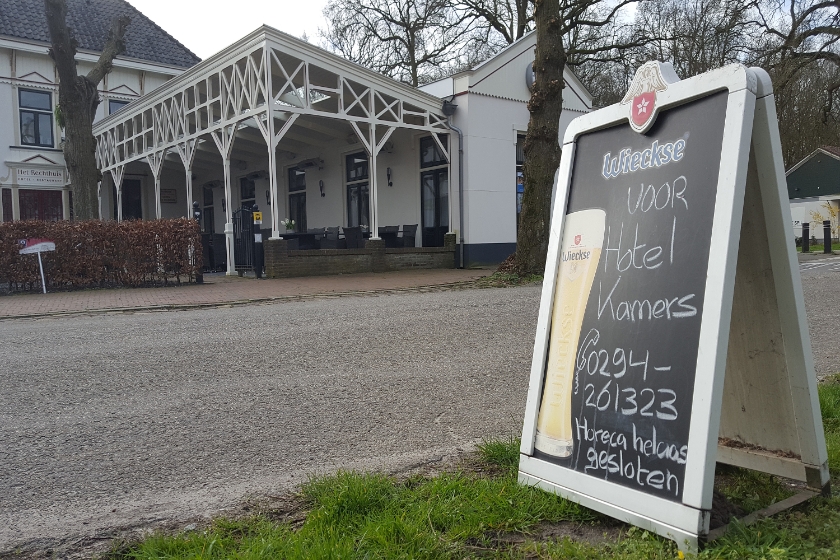 Het Rechthuis
Wieckse
VOOR
Hotel
Kamers
0294-
261323
Horeca helaas
gesloten
Wieckse